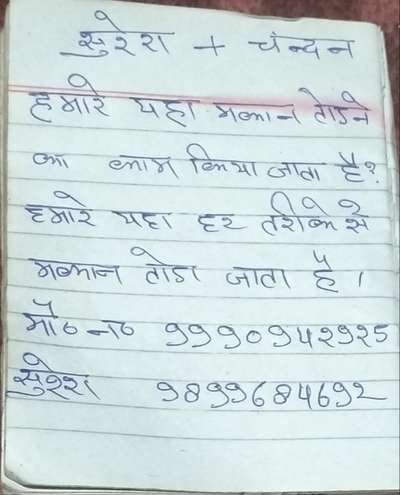 सुरेश + चंन्दन
हमारे यहा मकान तोडने
का काम किया जाता है?
हमारे यहा हर तरीके से
मकान तोडा जाता है ।
मो० न० 9990942925
सुरेश 9899684692